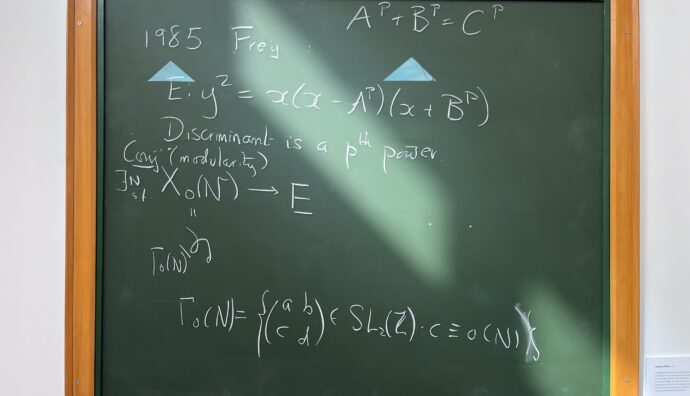 A^P + B^P = C^P
1985 Frey :
E: y² = x(x - A^P)(x + B^P)
Discriminant is a pth power
Conj (modularity)
∃N s.t. X₀(N) → E
=
Γ₀(N)\
Γ₀(N) = {(a b
c d) ∈ SL₂(Z) : c ≡ 0 (N)}